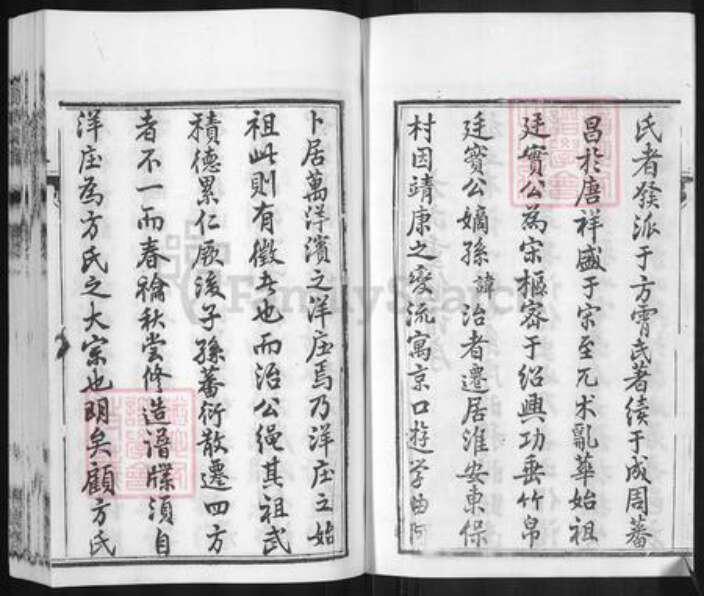 氏者發派于方霄氏著績于成周蕃
昌於唐祥盛于宋至兀朮亂華始祖
廷實公為宋樞密于紹興功垂竹帛
廷實公嫡孫諱治者遷居淮安東保
村因靖康之变流寓京口遊学曲阿
卜居萬洋濱之洋庄焉乃洋庄立始
祖此則有徵者也而治公绳其祖武
積德累仁厥後子孫蕃衍散遷四方
者不一而春禴秋尝修造譜牒須自
洋庄為方氏之大宗也明矣顧方氏
FamilySearch